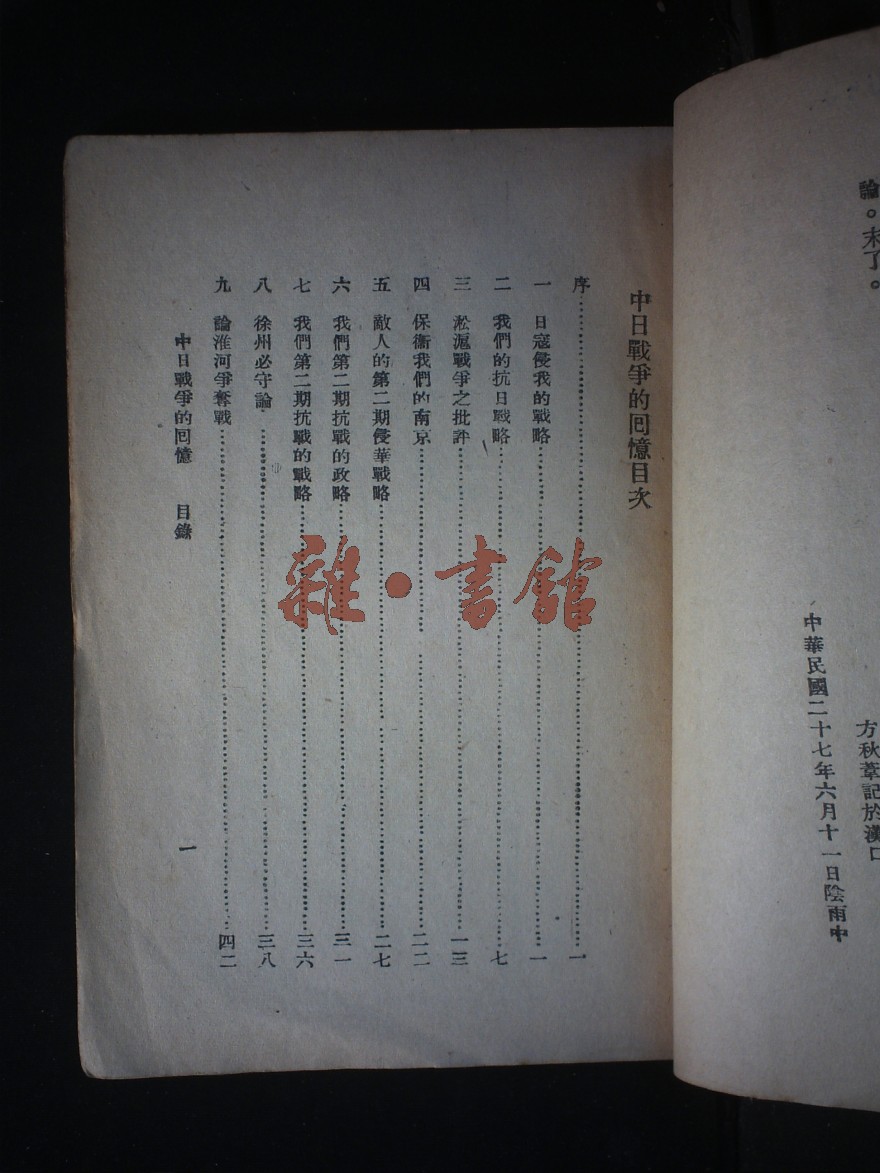 論。末了。
方秋葦記於漢口
中華民國二十七年六月十一日陰雨中
中日戰爭的回憶目次
序……一
一 日寇侵我的戰略……一
二 我們的抗日戰略……七
三 淞滬戰爭之批評……一三
四 保衞我們的南京……二二
五 敵人的第二期侵華戰略……二七
六 我們第二期抗戰的政略……三一
七 我們第二期抗戰的戰略……三六
八 徐州必守論……三八
九 論淮河爭奪戰……四二
中日戰爭的回憶 目錄 一
雜·書館